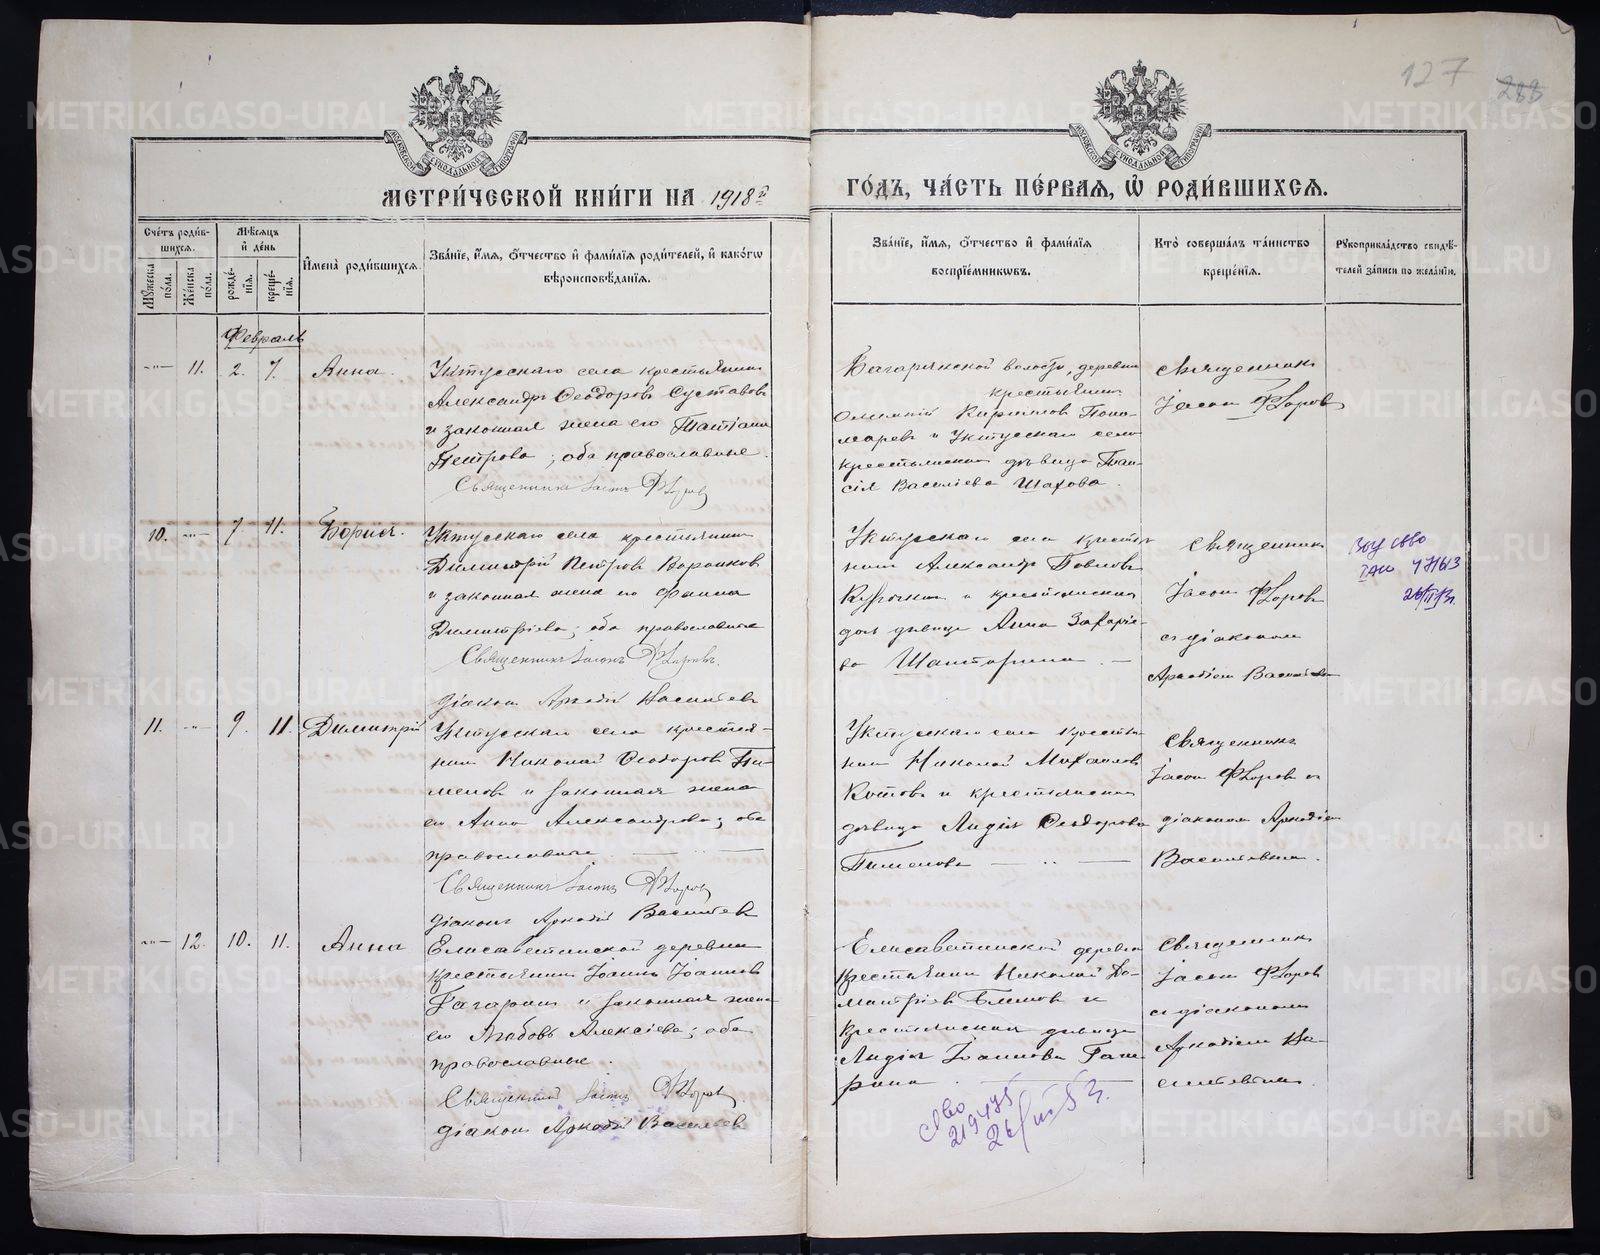 127
288
МЕТРИ́ЧЕСКОЙ КНИ́ГИ НА 1918й ГО́ДЪ, ЧА́СТЬ ПЕ́РВАЯ, Ѡ РОДИ́ВШИХСЯ.
Сче́тъ роди́вшихся.
Му́жеска по́ла.
Же́нска по́ла.
Мѣ́сяцъ и де́нь
рожде́нїя.
креще́нїя.
И́мена роди́вшихся.
Зва́нїе, и́мя, о́тчество и фами́лїя роди́телей, и како́гѡ
вѣроисповѣ́данїя.
Зва́нїе, и́мя, о́тчество и фами́лїя
воспрїе́мникωвъ.
Кто̀ соверша́лъ та́инство
креще́нїя.
Рукоприкла́дство свидѣ́телей за́писи по жела́нїю.
Февраль
11. 2. 7. Анна.
Уктусскаго села крестьянинъ
Александръ Ѳеодоровъ Суставовъ
и законная жена его Татіана
Петрова; оба православные.
Священникъ Іасонъ Флоровъ
Багарякской волости, деревни
крестьянинъ
Кирилловъ Поно-
маревъ и Уктусскаго села
крестьянская дѣвица Таи-
сія Василіева Шахова.
Священникъ
Іасонъ Флоровъ
10. 7. 11. Борисъ.
Уктусскаго села крестьянинъ
Димитрій Петровъ Воронковъ
и законная жена его Фаина
Димитріева; оба православные
Священникъ Іасонъ Флоровъ.
діаконъ Аркадій Васильевъ
Уктусскаго села крестья-
нинъ Александръ Павловъ
и крестьянская
дѣвица Анна Захаріе-
ва
Священникъ
Іасонъ Флоровъ
съ діакономъ
Аркадіемъ
ЗАГС
471613
11. 9. 11. Димитрій
Уктусскаго села крестья-
нинъ Николай Ѳеодоровъ Пи-
меновъ и законная жена
его Анна Александрова; оба
православные
Священникъ Іасонъ Флоровъ
діаконъ Аркадій Васильевъ
Уктусскаго села крестья-
нинъ Николай Михаиловъ
и крестьянская
дѣвица Лидія Ѳеодорова
Пименова
Священникъ
Іасонъ Флоровъ съ
діакономъ Аркадіемъ
Васильевымъ.
12. 10. 11. Анна
Елисаветинской деревни
крестьянинъ Іоаннъ Іоанновъ
Гагаринъ и законная жена
его Любовь Алексіева; оба
православные.
Священникъ Іасонъ Флоровъ
діаконъ Аркадій Васильевъ
Елисаветинской деревни
крестьянинъ Николай Ди-
митріевъ Блиновъ и
крестьянская дѣвица
Лидія Іоаннова Гага-
рина.
Священникъ
Іасонъ Флоровъ
съ діакономъ
Аркадіемъ Ва-
сильевымъ.
219475
METRIKI.GASO-URAL.RU